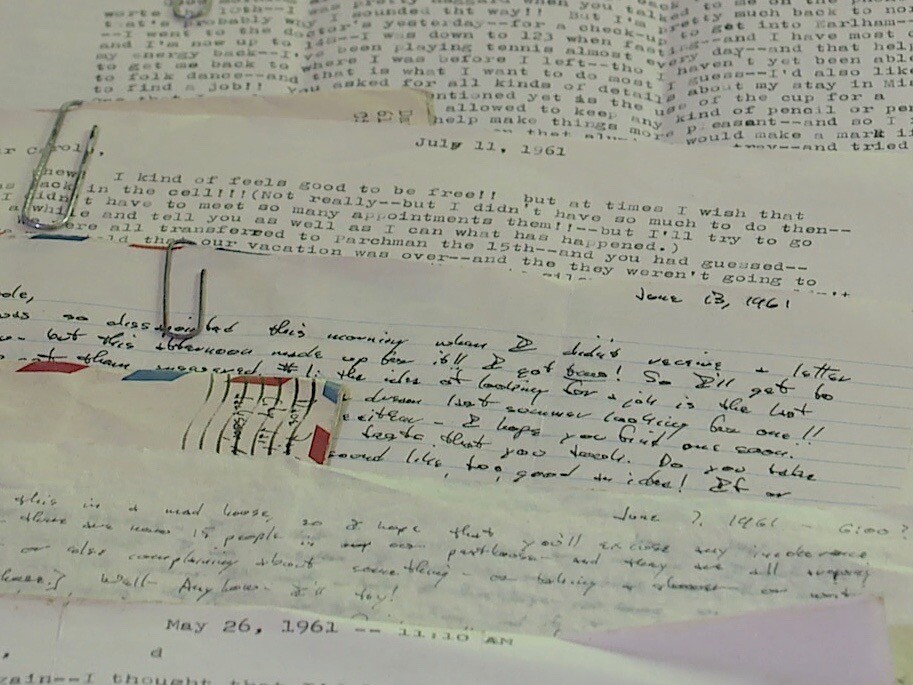 was pretty haggard when you talked to me on the phone
worte 10th--I sounded tht way!! But I'm pretty much back to nor
that's probably why I
--I went to the doctor's yesterday--for a check-up to get into Earlham--
and I'm now up to 140--I was down to 123 when fasting--and I have most o
my energy back--I've been playing tennis almost every day--and that help
to get me back to where I was before I left--tho I haven't yet been able
to folk dance--and that is what I want to do most I guess--I'd also like
to find a job!! You asked for all kinds of details about my stay in Mis
mentioned yet is the use of the cup for a
allowed to keep any kind of pencil or pen
help make things more pleasant--and so I
would make a mark i
tray--and tried
July 11, 1961
ar carol,
new I kind of feels good to be free!! but at times I wish that
as back in the cell!!!(Not really--but I didn't have so much to do then--
I didn't have to meet so many appointments them!!--but I'll try to go
a while and tell you as well as I can what has happened.)
We were all transferred to Parchman the 15th--and you had guessed--
our vacation was over--and the they weren't going to
June 13, 1961
ole,
was so dissapointed this morning when I didn't receive a letter
- but this afternoon made up for it!! I got two! So I'll get to
answered #1: the idea of looking for a job is the last
dream last summer looking for one!!
- I hope you find one soon.
that you teach. Do you take
sound like too good an idea! If or
June ?, 1961 - 6:00?
this in a mad house, so I hope that you'll excuse any incoherence
there are now 15 people in our penthouse and they are all
or else complaining about something - or taking a shower or
Well - Anyhow - I'll try!
May 26, 1961 -- 11:10 AM
d
gain--I thought that